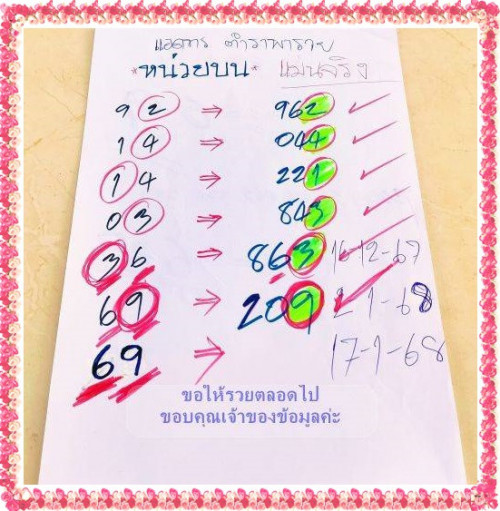 แอดการ ตำราพารวย
*หน่วยบน* แม่นจริง
92 ⇒ 962 ✓
14 ⇒ 044 ✓
14 ⇒ 221 ✓
03 ⇒ 843 ✓
36 ⇒ 863 16-12-67
69 ⇒ 209 2-1-68
69 ⇒ 17-1-68
ขอให้รวยตลอดไป
ขอบคุณเจ้าของข้อมูลค่ะ